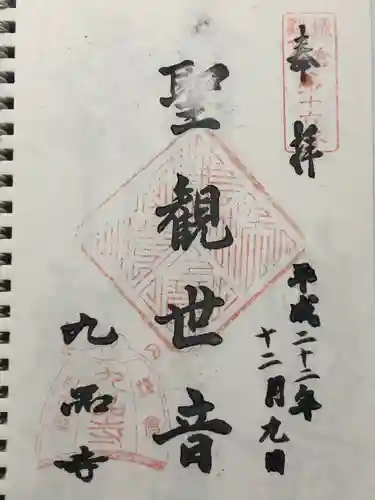 奉拝
聖観世音
平成二十二年
十二月九日
九品寺